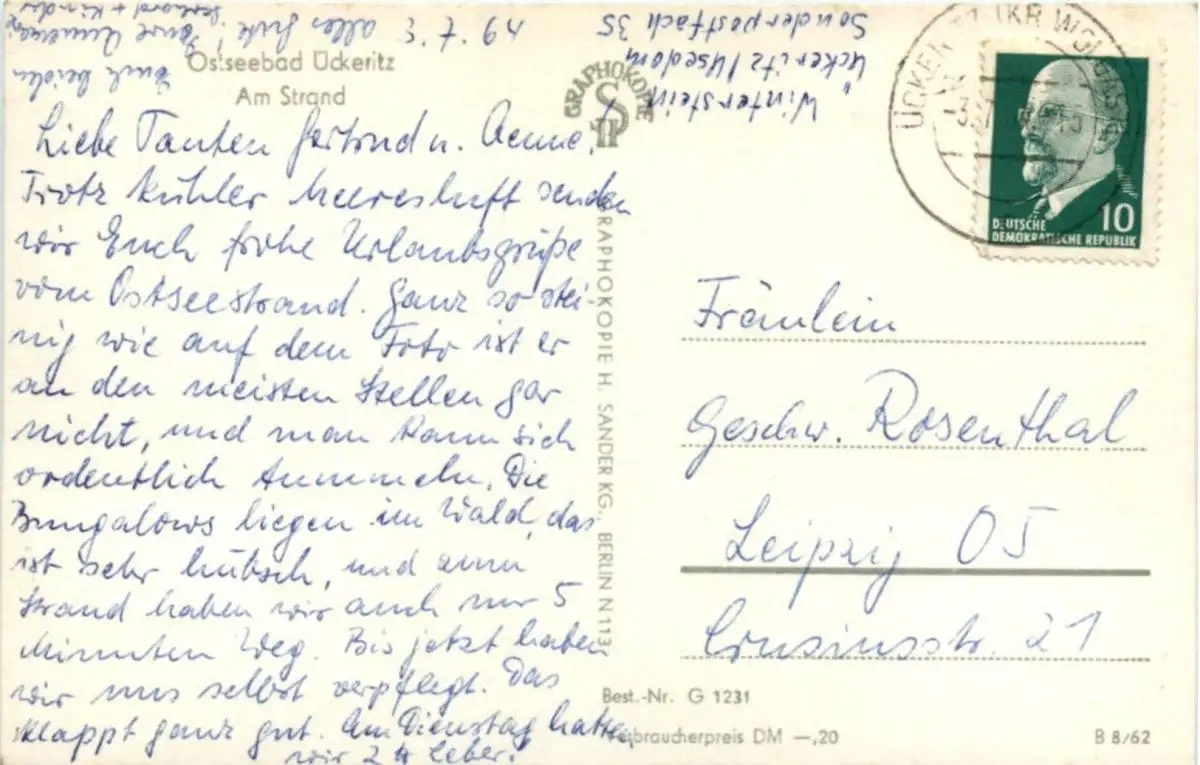 Ostseebad Ückeritz
Am Strand
Liebe Tanten Gertrud u. Aenne!
Trotz kühler Meeresluft senden
wir Euch frohe Urlaubsgrüße
vom Ostseestrand. Ganz so stei-
nig wie auf dem Foto ist er
an den meisten Stellen gar
nicht, und man kann sich
ordentlich tummeln. Die
Bungalows liegen im Wald, das
ist sehr hübsch, und zum
Strand haben wir auch nur 5
Minuten Weg. Bis jetzt haben
wir uns selbst verpflegt. Das
klappt ganz gut. Am Dienstag hatten
wir 2 Leber!
Euch beiden
alles Gute, Eure
+ Kinder
3. 7. 64
Winterstein
Ückeritz/Usedom
Sonderpostfach 35
GRAPHOKOPIE
GRAPHOKOPIE H. SANDER KG., BERLIN N 113
DEUTSCHE
DEMOKRATISCHE REPUBLIK
10
Fräulein
Geschw. Rosenthal
Leipzig O5
Crusiusstr. 21
Best.-Nr. G 1231
Verbraucherpreis DM —,20
B 8/62